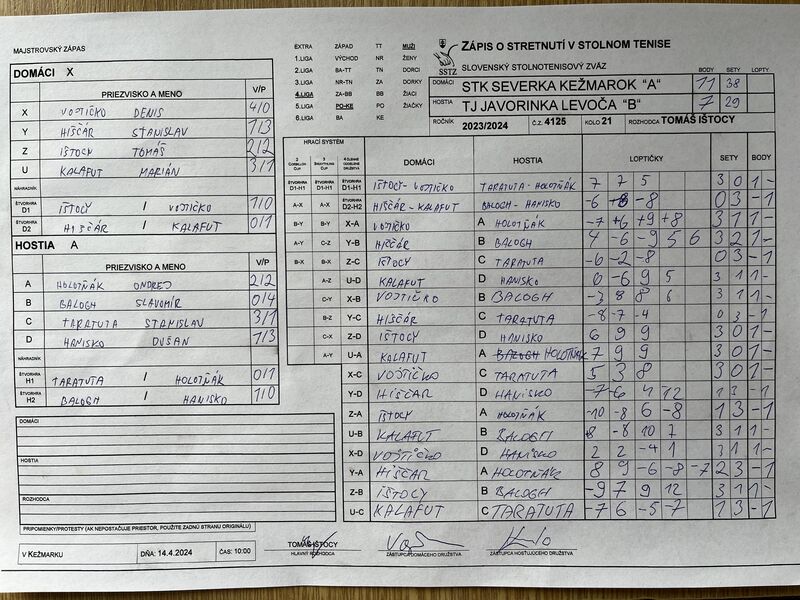 MAJSTROVSKÝ ZÁPAS
DOMÁCI X
PRIEZVISKO A MENO V/P
X VOJTIČKO DENIS 4/0
Y HIŠČÁR STANISLAV 1/3
Z IŠTOCY TOMÁŠ 2/2
U KALAFUT MARIÁN 3/1
NÁHRADNÍK
ŠTVORHRA D1 IŠTOCY / VOJTIČKO 1/0
ŠTVORHRA D2 HIŠČÁR / KALAFUT 0/1
HOSTIA A
PRIEZVISKO A MENO V/P
A HOLOTŇÁK ONDREJ 2/2
B BALOGH SLAVOMÍR 0/4
C TARATUTA STANISLAV 3/1
D HANISKO DUŠAN 1/3
NÁHRADNÍK
ŠTVORHRA H1 TARATUTA / HOLOTŇÁK 0/1
ŠTVORHRA H2 BALOGH / HANISKO 1/0
DOMÁCI
HOSTIA
ROZHODCA
PRIPOMIENKY/PROTESTY (AK NEPOSTAČUJE PRIESTOR, POUŽITE ZADNÚ STRANU ORIGINÁLU)
V KEŽMARKU DŇA: 14.4.2024 ČAS: 10:00
TOMÁŠ IŠTOCY
HLAVNÝ ROZHODCA
ZÁSTUPCA DOMÁCEHO DRUŽSTVA
ZÁSTUPCA HOSŤUJÚCEHO DRUŽSTVA
EXTRA ZÁPAD TT MUŽI
1.LIGA VÝCHOD NR ŽENY
2.LIGA BA-TT TN DORCI
3.LIGA NR-TN ZA DORKY
4.LIGA ZA-BB BB ŽIACI
5.LIGA PO-KE PO ŽIAČKY
6.LIGA BA KE
SSTZ
ZÁPIS O STRETNUTÍ V STOLNOM TENISE
SLOVENSKÝ STOLNOTENISOVÝ ZVÄZ
BODY SETY LOPTY
DOMÁCI STK SEVERKA KEŽMAROK "A" 11 38
HOSTIA TJ JAVORINKA LEVOČA "B" 7 29
ROČNÍK 2023/2024 Č.Z. 4125 KOLO 21 ROZHODCA TOMÁŠ IŠTOCY
HRACÍ SYSTÉM
DOMÁCI HOSTIA LOPTIČKY SETY BODY
ŠTVORHRA D1-H1 ŠTVORHRA D1-H1 ŠTVORHRA D1-H1 IŠTOCY - VOJTIČKO TARATUTA - HOLOTŇÁK 7 7 5 3 0 1 -
A-X A-X ŠTVORHRA D2-H2 HIŠČÁR - KALAFUT BALOGH - HANISKO -6 -8 -8 0 3 - 1
B-Y B-Y X-A VOJTIČKO A HOLOTŇÁK -7 +6 +9 +8 3 1 1 -
A-Y C-Z Y-B HIŠČÁR B BALOGH 4 -6 -9 5 6 3 2 1 -
B-X B-X Z-C IŠTOCY C TARATUTA -6 -2 -8 0 3 - 1
A-Z U-D KALAFUT D HANISKO 0 -6 9 5 3 1 1 -
C-Y X-B VOJTIČKO B BALOGH -3 8 8 6 3 1 1 -
B-Z Y-C HIŠČÁR C TARATUTA -8 -7 -4 0 3 - 1
C-X Z-D IŠTOCY D HANISKO 6 9 9 3 0 1 -
A-Y U-A KALAFUT A BALOGH HOLOTŇÁK 7 9 9 3 0 1 -
X-C VOJTIČKO C TARATUTA 5 3 8 3 0 1 -
Y-D HIŠČÁR D HANISKO -7 -6 4 -12 1 3 - 1
Z-A IŠTOCY A HOLOTŇÁK -10 -8 6 -8 1 3 - 1
U-B KALAFUT B BALOGH 8 -8 10 7 3 1 1 -
X-D VOJTIČKO D HANISKO 2 2 -4 1 3 1 1 -
Y-A HIŠČÁR A HOLOTŇÁK 8 9 -6 -8 -7 2 3 - 1
Z-B IŠTOCY B BALOGH -9 7 9 12 3 1 1 -
U-C KALAFUT C TARATUTA -7 6 -5 -7 1 3 - 1